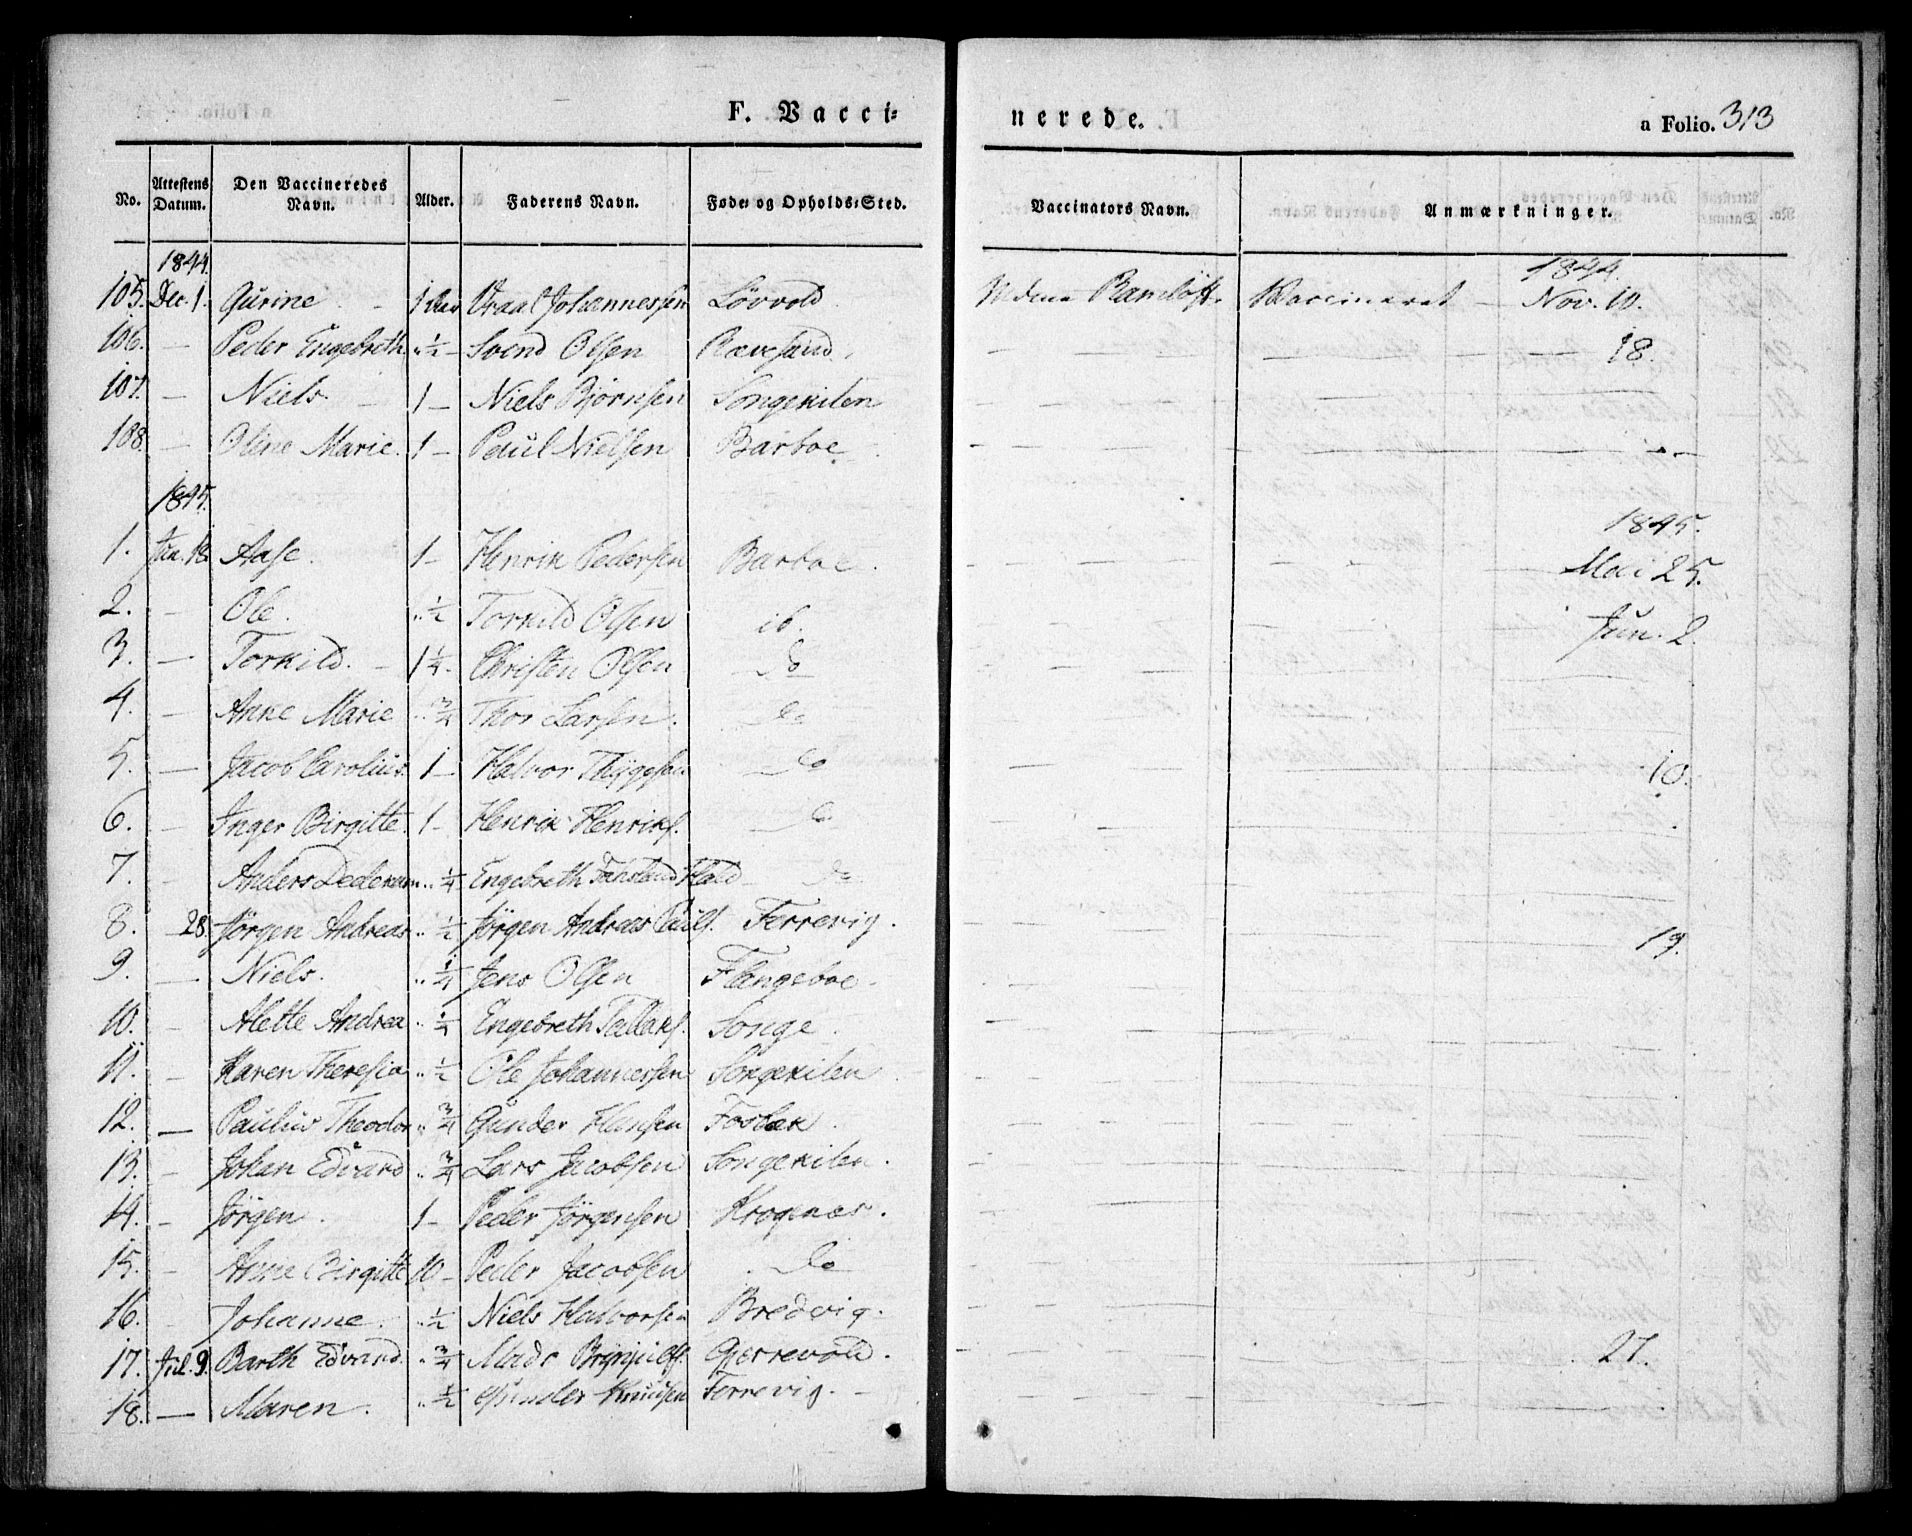 F. Vacci=
nerede.
a Folio. 313
No. Attestens Datum. Den Vaccineredes Navn. Alder. Faderens Navn. Føde= og Opholds=Sted. Vaccinators Navn. Anmærkninger.
1844. 1844.
105. Dec. 1. Gurine 1 Aar Vraal Johannessen Løvvold Vaccineret – Nov. 10.
106. – Peder Engebreth „ ½ – Svend Olsen Ravsand – 18.
107. – Niels 1 – Niels Bjørnsen Songekilen
108. – Oline Marie. 1 – Paul Nielsen Barboe
1845. 1845.
1. Jun. 18. Aase. 1 – Henrik Pedersen Barboe. Mai 25.
2. – Ole. „ ½ Torkild Olsen ib. Jun. 2.
3. – Torkild. 1¼ Christen Olsen do
4. – Anne Marie „ ¾ Thor Larsen. do
5. – Jacob Carolius. 1 – Halvor Thygesen do 10.
6. – Inger Birgitte. 1 – Henrik Henriks. do
7. – Anders „ ¼ Engebreth Hald do
8. – 28. Jörgen Andreas „ ½ Jörgen Andreas Pauls. Terrevig. 19.
9. – Niels. „ ¼ Jens Olsen Flangeboe
10. – Alette Andrea „ ¼ Engebreth Tallaks. Songe
11. – Karen Theresia „ ½ Ole Johannessen Songekilen
12. – Paulus Theodor „ ¾ Gunder Hansen Fosbæk
13. – Johan Edvard „ ¾ Lars Jacobsen Songekilen.
14. – Jörgen. 1 – Peder Jörgensen Krogenæs.
15. – Anne Birgitte 10 – Peder Jacobsen do
16. Johanne. „ ½ Niels Halvorsen Bredvig.
17. Jul. 9. Barth Edvard. „ ¾ Mads Brynjulfs. Gjerrevold. 27.
18. – Maren. „ ½ Gunder Knudsen Terrevig. –